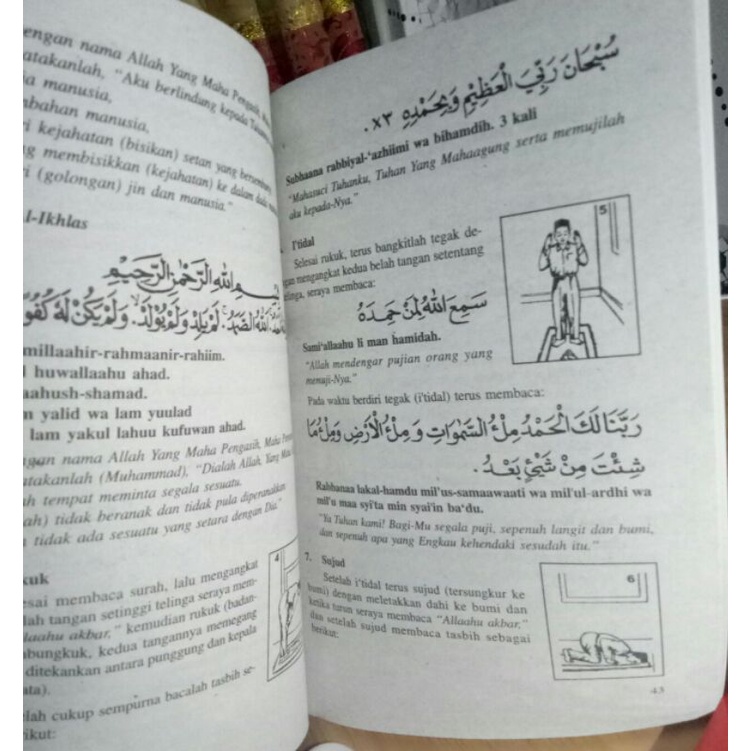 engan nama Allah Yang Maha Pengasih,
atakanlah, "Aku berlindung kepada
a manusia,
mbahan manusia,
ri kejahatan (bisikan) setan yang
g membisikkan (kejahatan) ke dalam dada
ri (golongan) jin dan manusia."
l-Ikhlas
بِسْمِ اللهِ الرَّحْمٰنِ الرَّحِيْمِ
اَللهُ الصَّمَدُ. لَمْ يَلِدْ وَلَمْ يُوْلَدْ. وَلَمْ يَكُنْ لَهُ كُفُوًا
millaahir-rahmaanir-rahiim.
l huwallaahu ahad.
aahush-shamad.
m yalid wa lam yuulad
lam yakul lahuu kufuwan ahad.
ngan nama Allah Yang Maha Pengasih, Maha
atakanlah (Muhammad), "Dialah Allah, Yang Maha
h tempat meminta segala sesuatu.
ah) tidak beranak dan tidak pula diperanakkan
n tidak ada sesuatu yang setara dengan Dia."
kuk
esai membaca surah, lalu mengangkat
lah tangan setinggi telinga seraya mem-
llaahu akbar," kemudian rukuk (badan-
mbungkuk, kedua tangannya memegang
ditekankan antara punggung dan kepala
ata).
elah cukup sempurna bacalah tasbih se-
rikut:
4
سُبْحَانَ رَبِّيَ الْعَظِيْمِ وَبِحَمْدِهِ ×٣.
Subhaana rabbiyal-'azhiimi wa bihamdih. 3 kali
"Mahasuci Tuhanku, Tuhan Yang Mahaagung serta memujilah
aku kepada-Nya."
I'tidal
Selesai rukuk, terus bangkitlah tegak de-
ngan mengangkat kedua belah tangan setentang
telinga, seraya membaca:
سَمِعَ اللهُ لِمَنْ حَمِدَهُ
Sami'allaahu li man hamidah.
"Allah mendengar pujian orang yang
memuji-Nya."
5
Pada waktu berdiri tegak (i'tidal) terus membaca:
رَبَّنَا لَكَ الْحَمْدُ مِلْءُ السَّمٰوَاتِ وَمِلْءُ الْأَرْضِ وَمِلْءُ مَا
شِئْتَ مِنْ شَيْئٍ بَعْدُ.
Rabbanaa lakal-hamdu mil'us-samaawaati wa mil'ul-ardhi wa
mil'u maa syi'ta min syai'in ba'du.
"Ya Tuhan kami! Bagi-Mu segala puji, sepenuh langit dan bumi,
dan sepenuh apa yang Engkau kehendaki sesudah itu."
7. Sujud
Setelah i'tidal terus sujud (tersungkur ke
bumi) dengan meletakkan dahi ke bumi dan
ketika turun seraya membaca "Allaahu akbar,"
dan setelah sujud membaca tasbih sebagai
berikut:
6
43